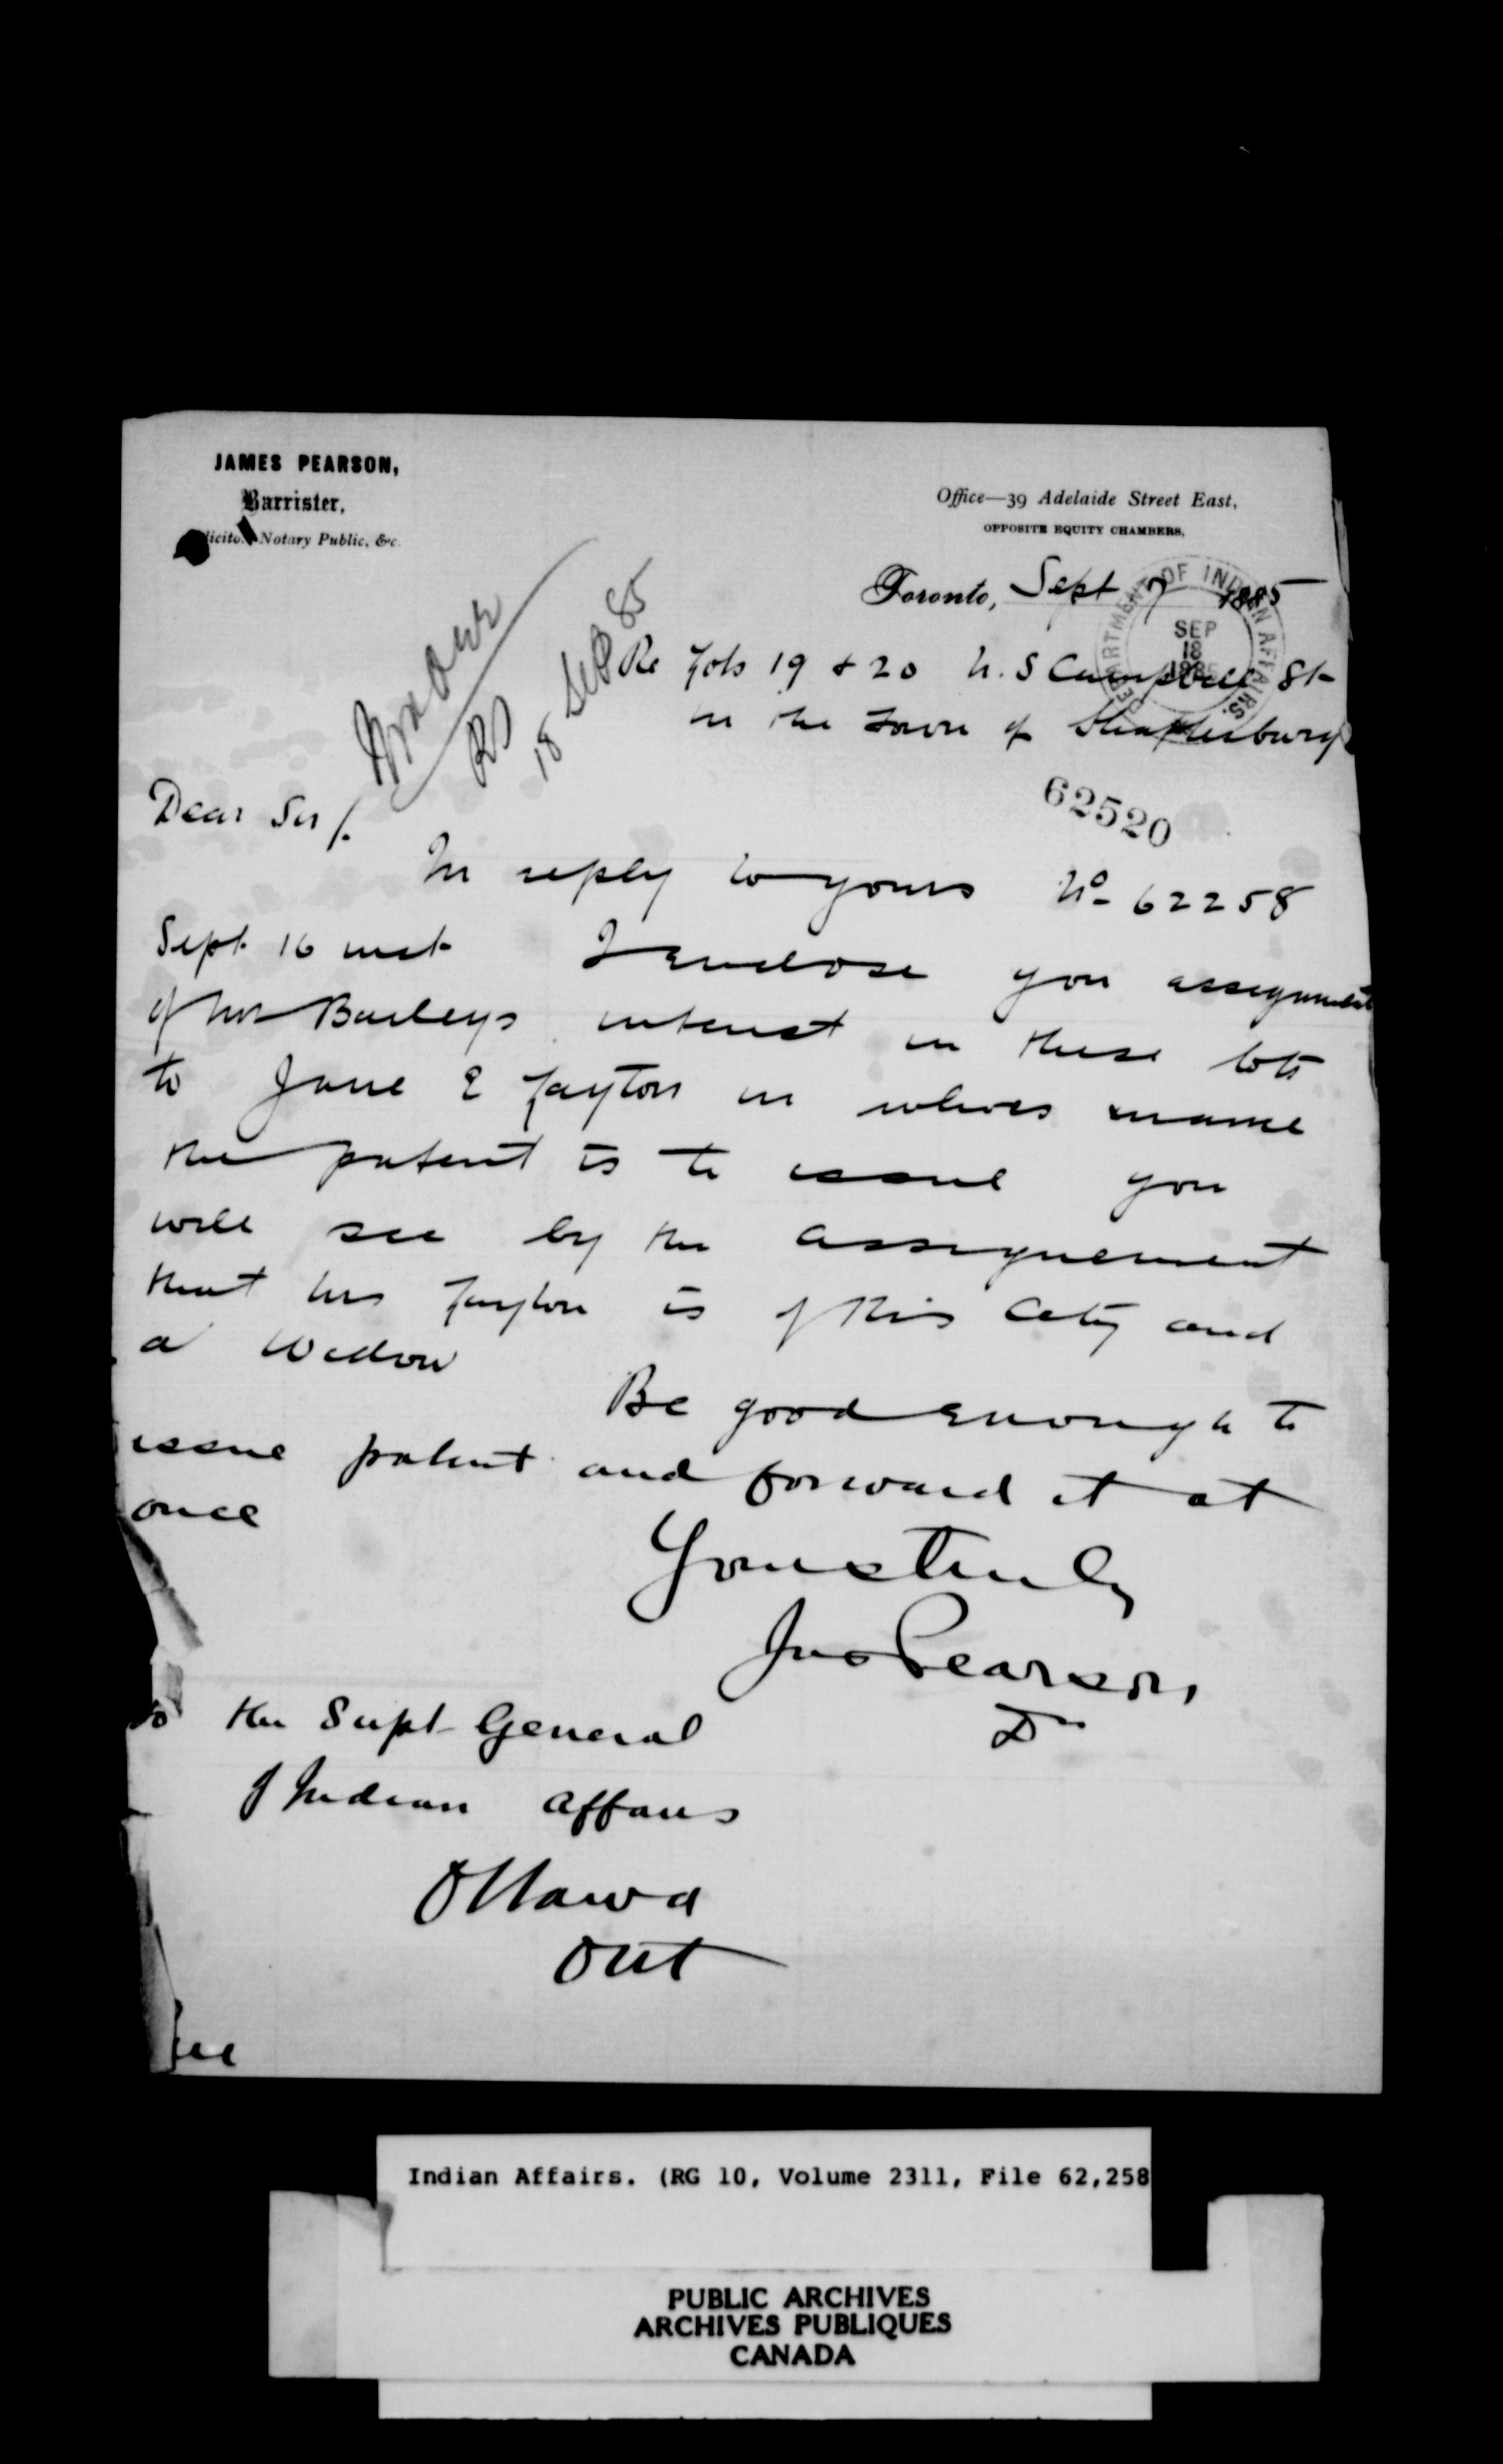 JAMES PEARSON,
Barrister,
Notary Public, &c.
Office—39 Adelaide Street East,
OPPOSITE EQUITY CHAMBERS,
Toronto, Sept 1885
DEPARTMENT OF INDIAN AFFAIRS.
SEP
18
1885
RS
18 Sep 85
Re Lots 19 & 20 N. S Campbell St
in the Town of Shaftesbury
62520
Dear Sir/.
In reply to yours No 62258
Sept 16 inst I enclose you assignment
of Mr Baileys interest in these lots
to Jane E Layton in whose name
the patent is to issue you
will see by the assignement
that Mrs Layton is of this City and
a Widow
Be good enough to
issue patent and forward it at
once
Yours truly
Jas Pearson,
To the Supt General
of Indian Affairs
Ottawa
Ont
Indian Affairs. (RG 10, Volume 2311, File 62,258
PUBLIC ARCHIVES
ARCHIVES PUBLIQUES
CANADA